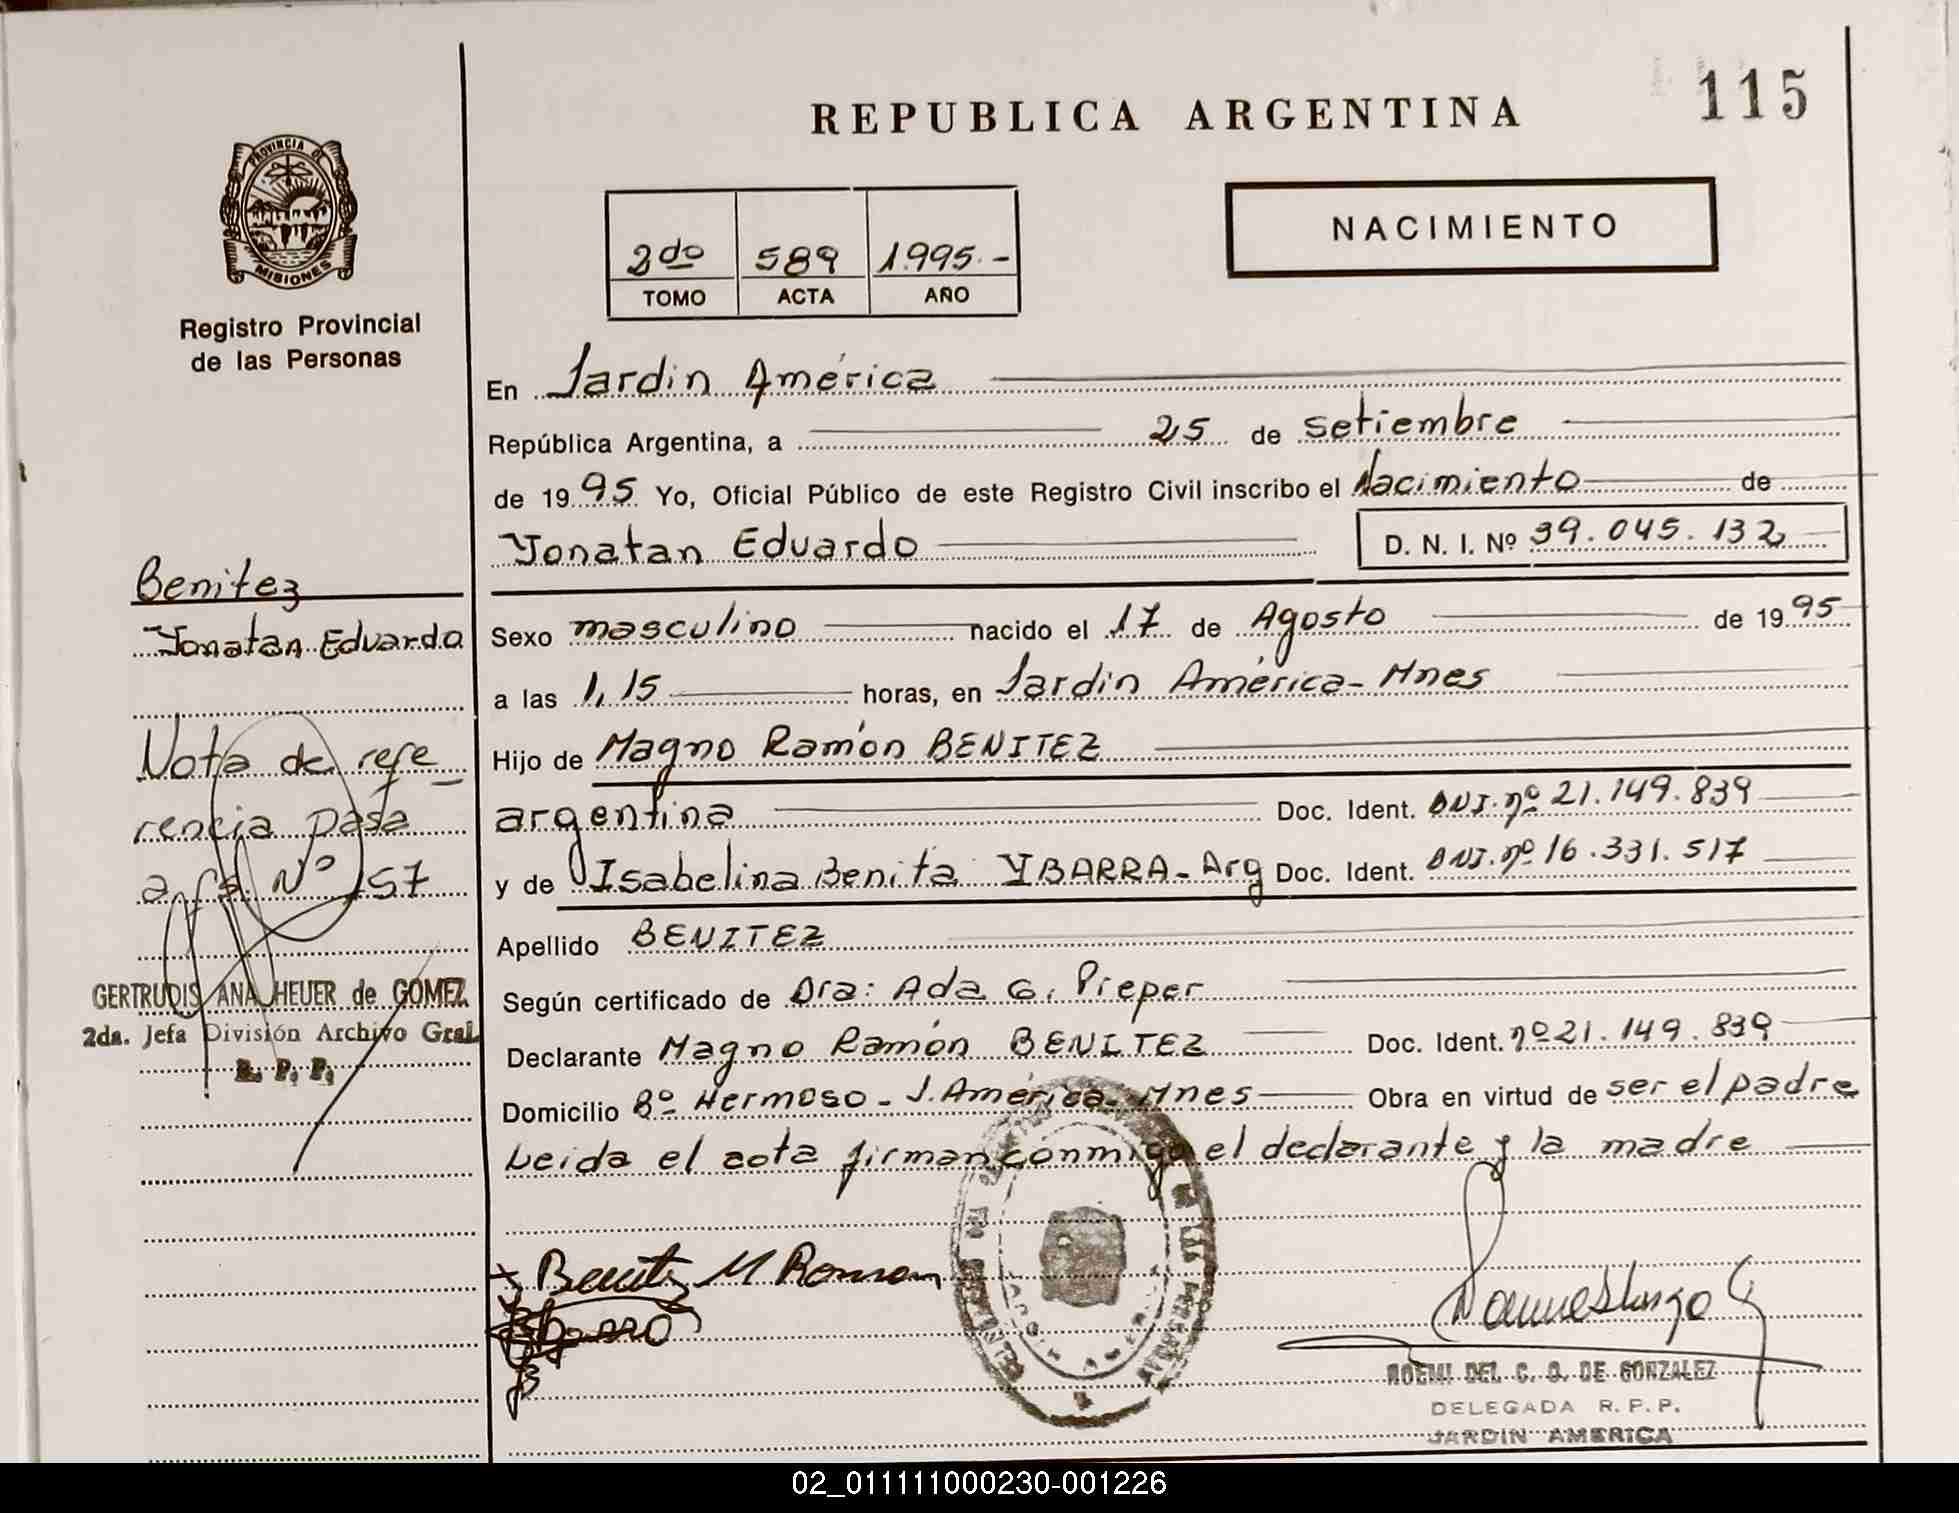 115
REPUBLICA ARGENTINA
PROVINCIA DE
MISIONES
Registro Provincial
de las Personas
NACIMIENTO
2do 589 1995.-
TOMO ACTA AÑO
En Jardin América
República Argentina, a 25 de setiembre
de 1995 Yo, Oficial Público de este Registro Civil inscribo el Nacimiento de
Yonatan Eduardo D. N. I. Nº 39.045.132
Sexo masculino nacido el 17 de Agosto de 1995
a las 1,15 horas, en Jardin América- Mnes
Hijo de Magno Ramón BENITEZ
argentina Doc. Ident. DNI. nº 21.149.839
y de Isabelina Benita YBARRA- Arg Doc. Ident. DNI. nº 16.331.517
Apellido BENITEZ
Según certificado de Dra: Ada G. Pieper
Declarante Magno Ramón BENITEZ Doc. Ident. nº 21.149.839
Domicilio Bº Hermoso - J. América- Mnes Obra en virtud de ser el padre
Leida el acta firman conmigo el declarante y la madre
Benitez M Ramon
NOEMI DEL C. G. DE GONZALEZ
DELEGADA R. P. P.
JARDIN AMERICA
Benitez
Yonatan Eduardo
Nota de refe
rencia pasa
a fs. Nº 157
GERTRUDIS ANA HEUER de GOMEZ
2da. Jefa División Archivo Gral.
R. P. P.
02_011111000230-001226